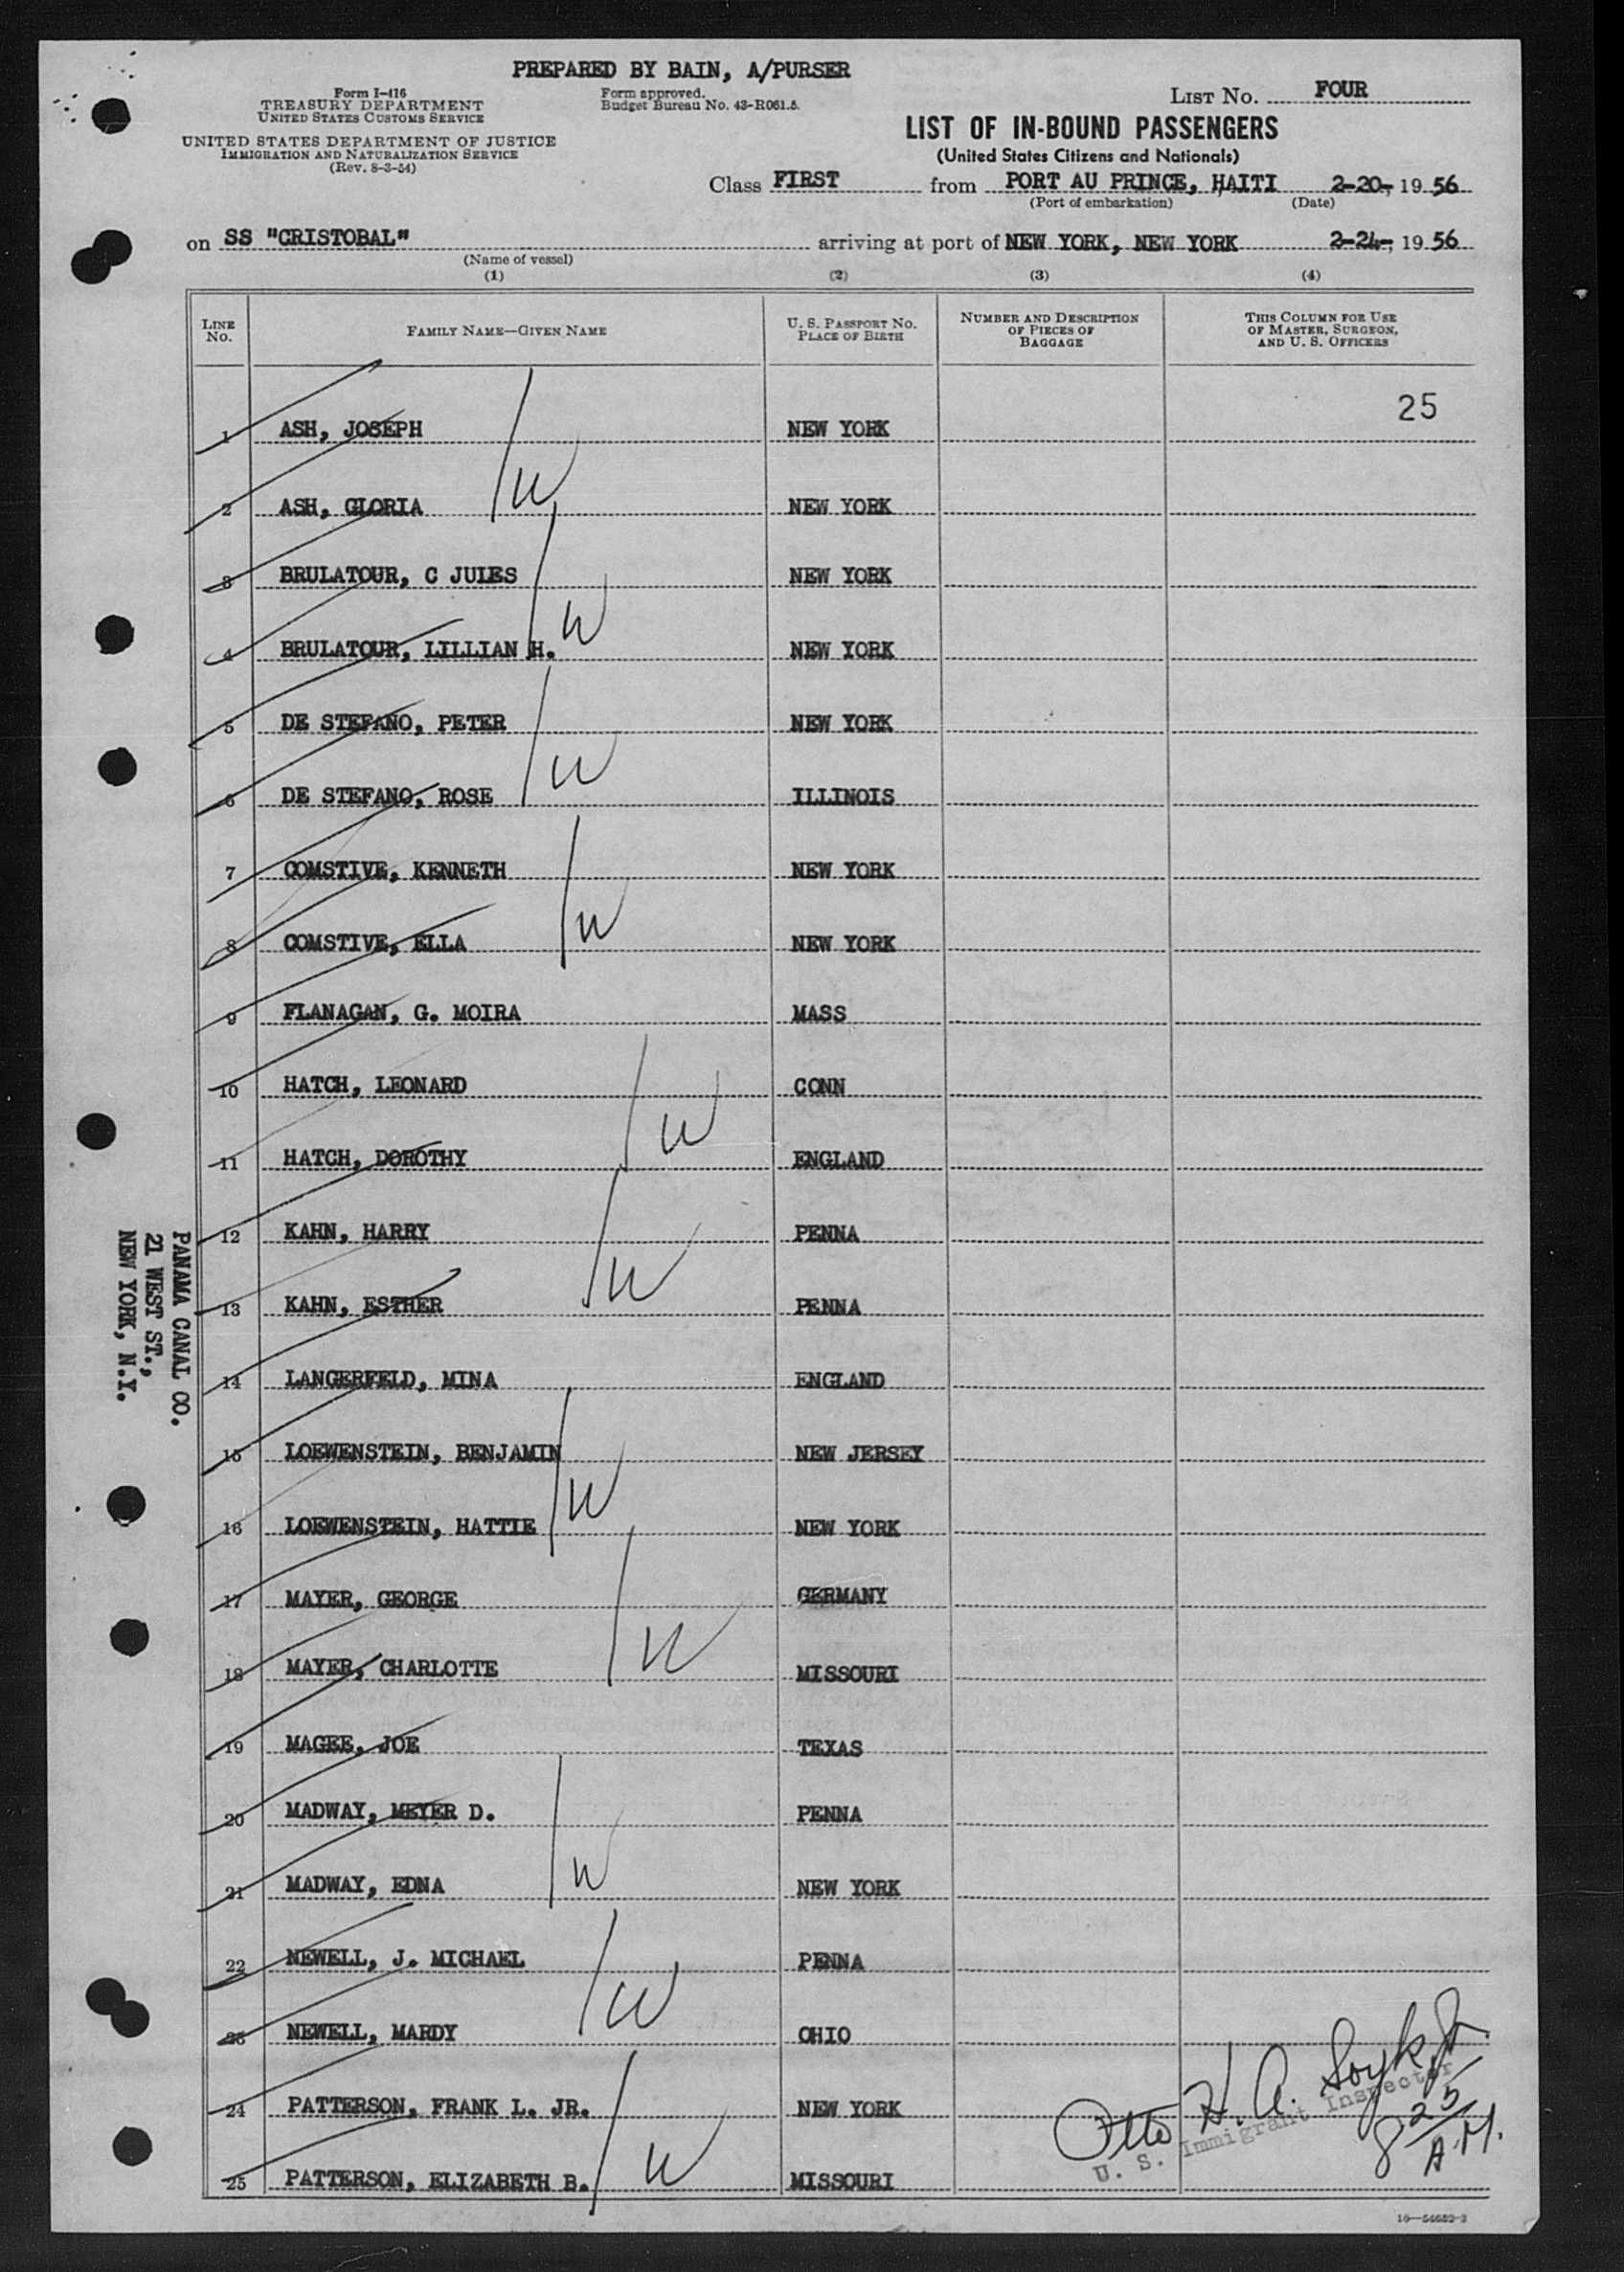 PREPARED BY BAIN, A/PURSER
Form I-416
TREASURY DEPARTMENT
UNITED STATES CUSTOMS SERVICE
UNITED STATES DEPARTMENT OF JUSTICE
IMMIGRATION AND NATURALIZATION SERVICE
(Rev. 8-3-54)
Form approved.
Budget Bureau No. 43-R061.5.
LIST No. FOUR
LIST OF IN-BOUND PASSENGERS
(United States Citizens and Nationals)
Class FIRST from PORT AU PRINCE, HAITI 2-20-, 1956
(Port of embarkation) (Date)
on SS "CRISTOBAL" arriving at port of NEW YORK, NEW YORK 2-24-, 1956
(Name of vessel)
(1) (2) (3) (4)
LINE No. FAMILY NAME—GIVEN NAME U. S. PASSPORT No. PLACE OF BIRTH NUMBER AND DESCRIPTION OF PIECES OF BAGGAGE THIS COLUMN FOR USE OF MASTER, SURGEON, AND U. S. OFFICERS
25
1 ASH, JOSEPH NEW YORK
W
2 ASH, GLORIA NEW YORK
3 BRULATOUR, C JULES NEW YORK
W
4 BRULATOUR, LILLIAN H. NEW YORK
5 DE STEFANO, PETER NEW YORK
W
6 DE STEFANO, ROSE ILLINOIS
7 COMSTIVE, KENNETH NEW YORK
W
8 COMSTIVE, ELLA NEW YORK
9 FLANAGAN, G. MOIRA MASS
10 HATCH, LEONARD CONN
W
11 HATCH, DOROTHY ENGLAND
12 KAHN, HARRY PENNA
W
13 KAHN, ESTHER PENNA
14 LANGERFELD, MINA ENGLAND
15 LOEWENSTEIN, BENJAMIN NEW JERSEY
W
16 LOEWENSTEIN, HATTIE NEW YORK
17 MAYER, GEORGE GERMANY
W
18 MAYER, CHARLOTTE MISSOURI
19 MAGEE, JOE TEXAS
20 MADWAY, MEYER D. PENNA
W
21 MADWAY, EDNA NEW YORK
22 NEWELL, J. MICHAEL PENNA
W
23 NEWELL, MARDY OHIO
24 PATTERSON, FRANK L. JR. NEW YORK
W
25 PATTERSON, ELIZABETH B. MISSOURI
Otto H. A. Soyk, Jr.
U. S. Immigrant Inspector
8 25 A.M.
PANAMA CANAL CO.
21 WEST ST.,
NEW YORK, N.Y.